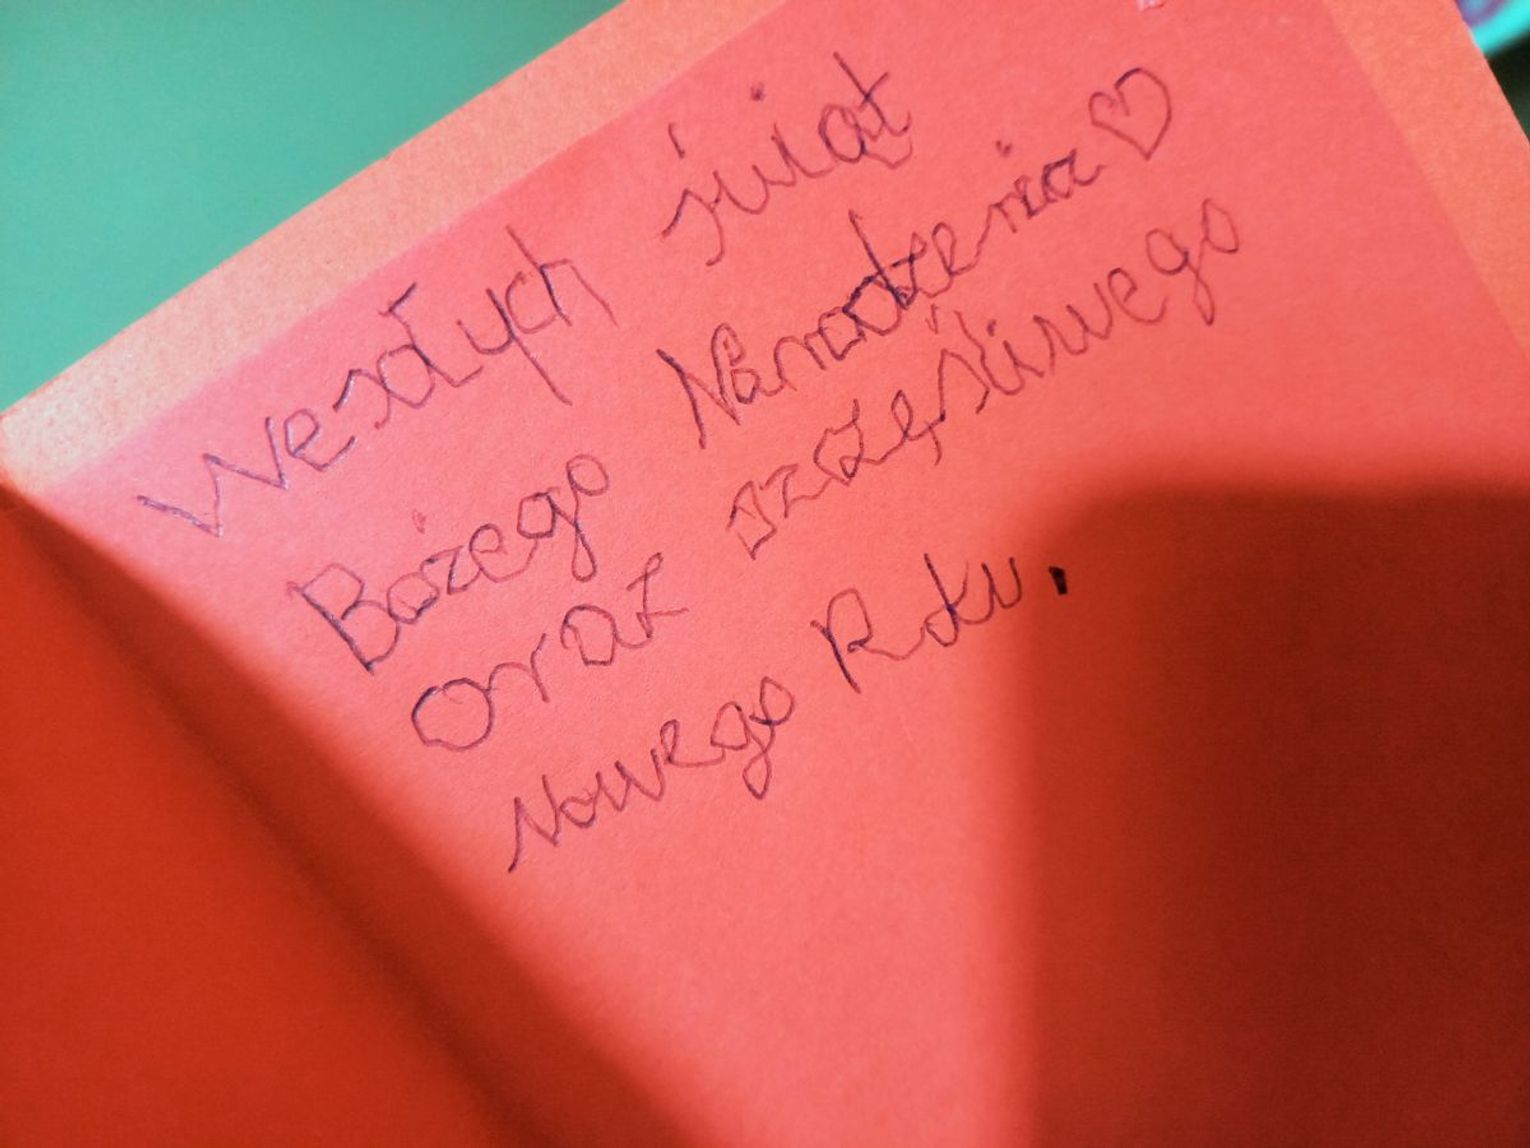 Wesołych świąt
Bożego Narodzenia ♡
oraz szczęśliwego
Nowego Roku.